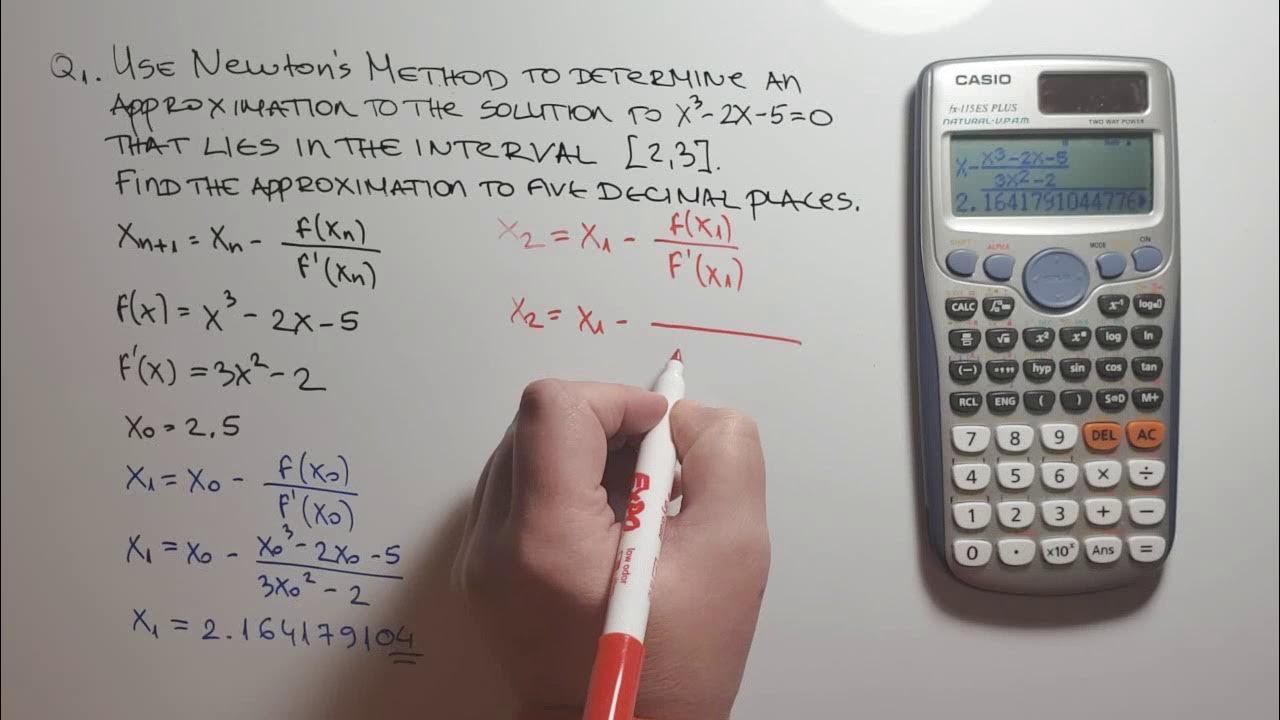 Q1. USE NEWTON'S METHOD TO DETERMINE AN
APPROXIMATION TO THE SOLUTION TO x³-2x-5=0
THAT LIES IN THE INTERVAL [2,3].
FIND THE APPROXIMATION TO FIVE DECIMAL PLACES.
xₙ₊₁ = xₙ - f(xₙ)/f'(xₙ)
f(x) = x³ - 2x - 5
f'(x) = 3x² - 2
x₀ = 2.5
x₁ = x₀ - f(x₀)/f'(x₀)
x₁ = x₀ - (x₀³ - 2x₀ - 5)/(3x₀² - 2)
x₁ = 2.164179104
x₂ = x₁ - f(x₁)/f'(x₁)
x₂ = x₁ -
EXPO
low odor
CASIO
fx-115ES PLUS
NATURAL-V.P.A.M.
TWO WAY POWER
x-(x³-2x-5)/(3x²-2)
2.1641791044776
SHIFT ALPHA MODE ON
CALC x⁻¹ log
√ x² log ln
(−) hyp sin cos tan
RCL ENG ( ) S⇔D M+
7 8 9 DEL AC
4 5 6 × ÷
1 2 3 + −
0 . ×10ˣ Ans =